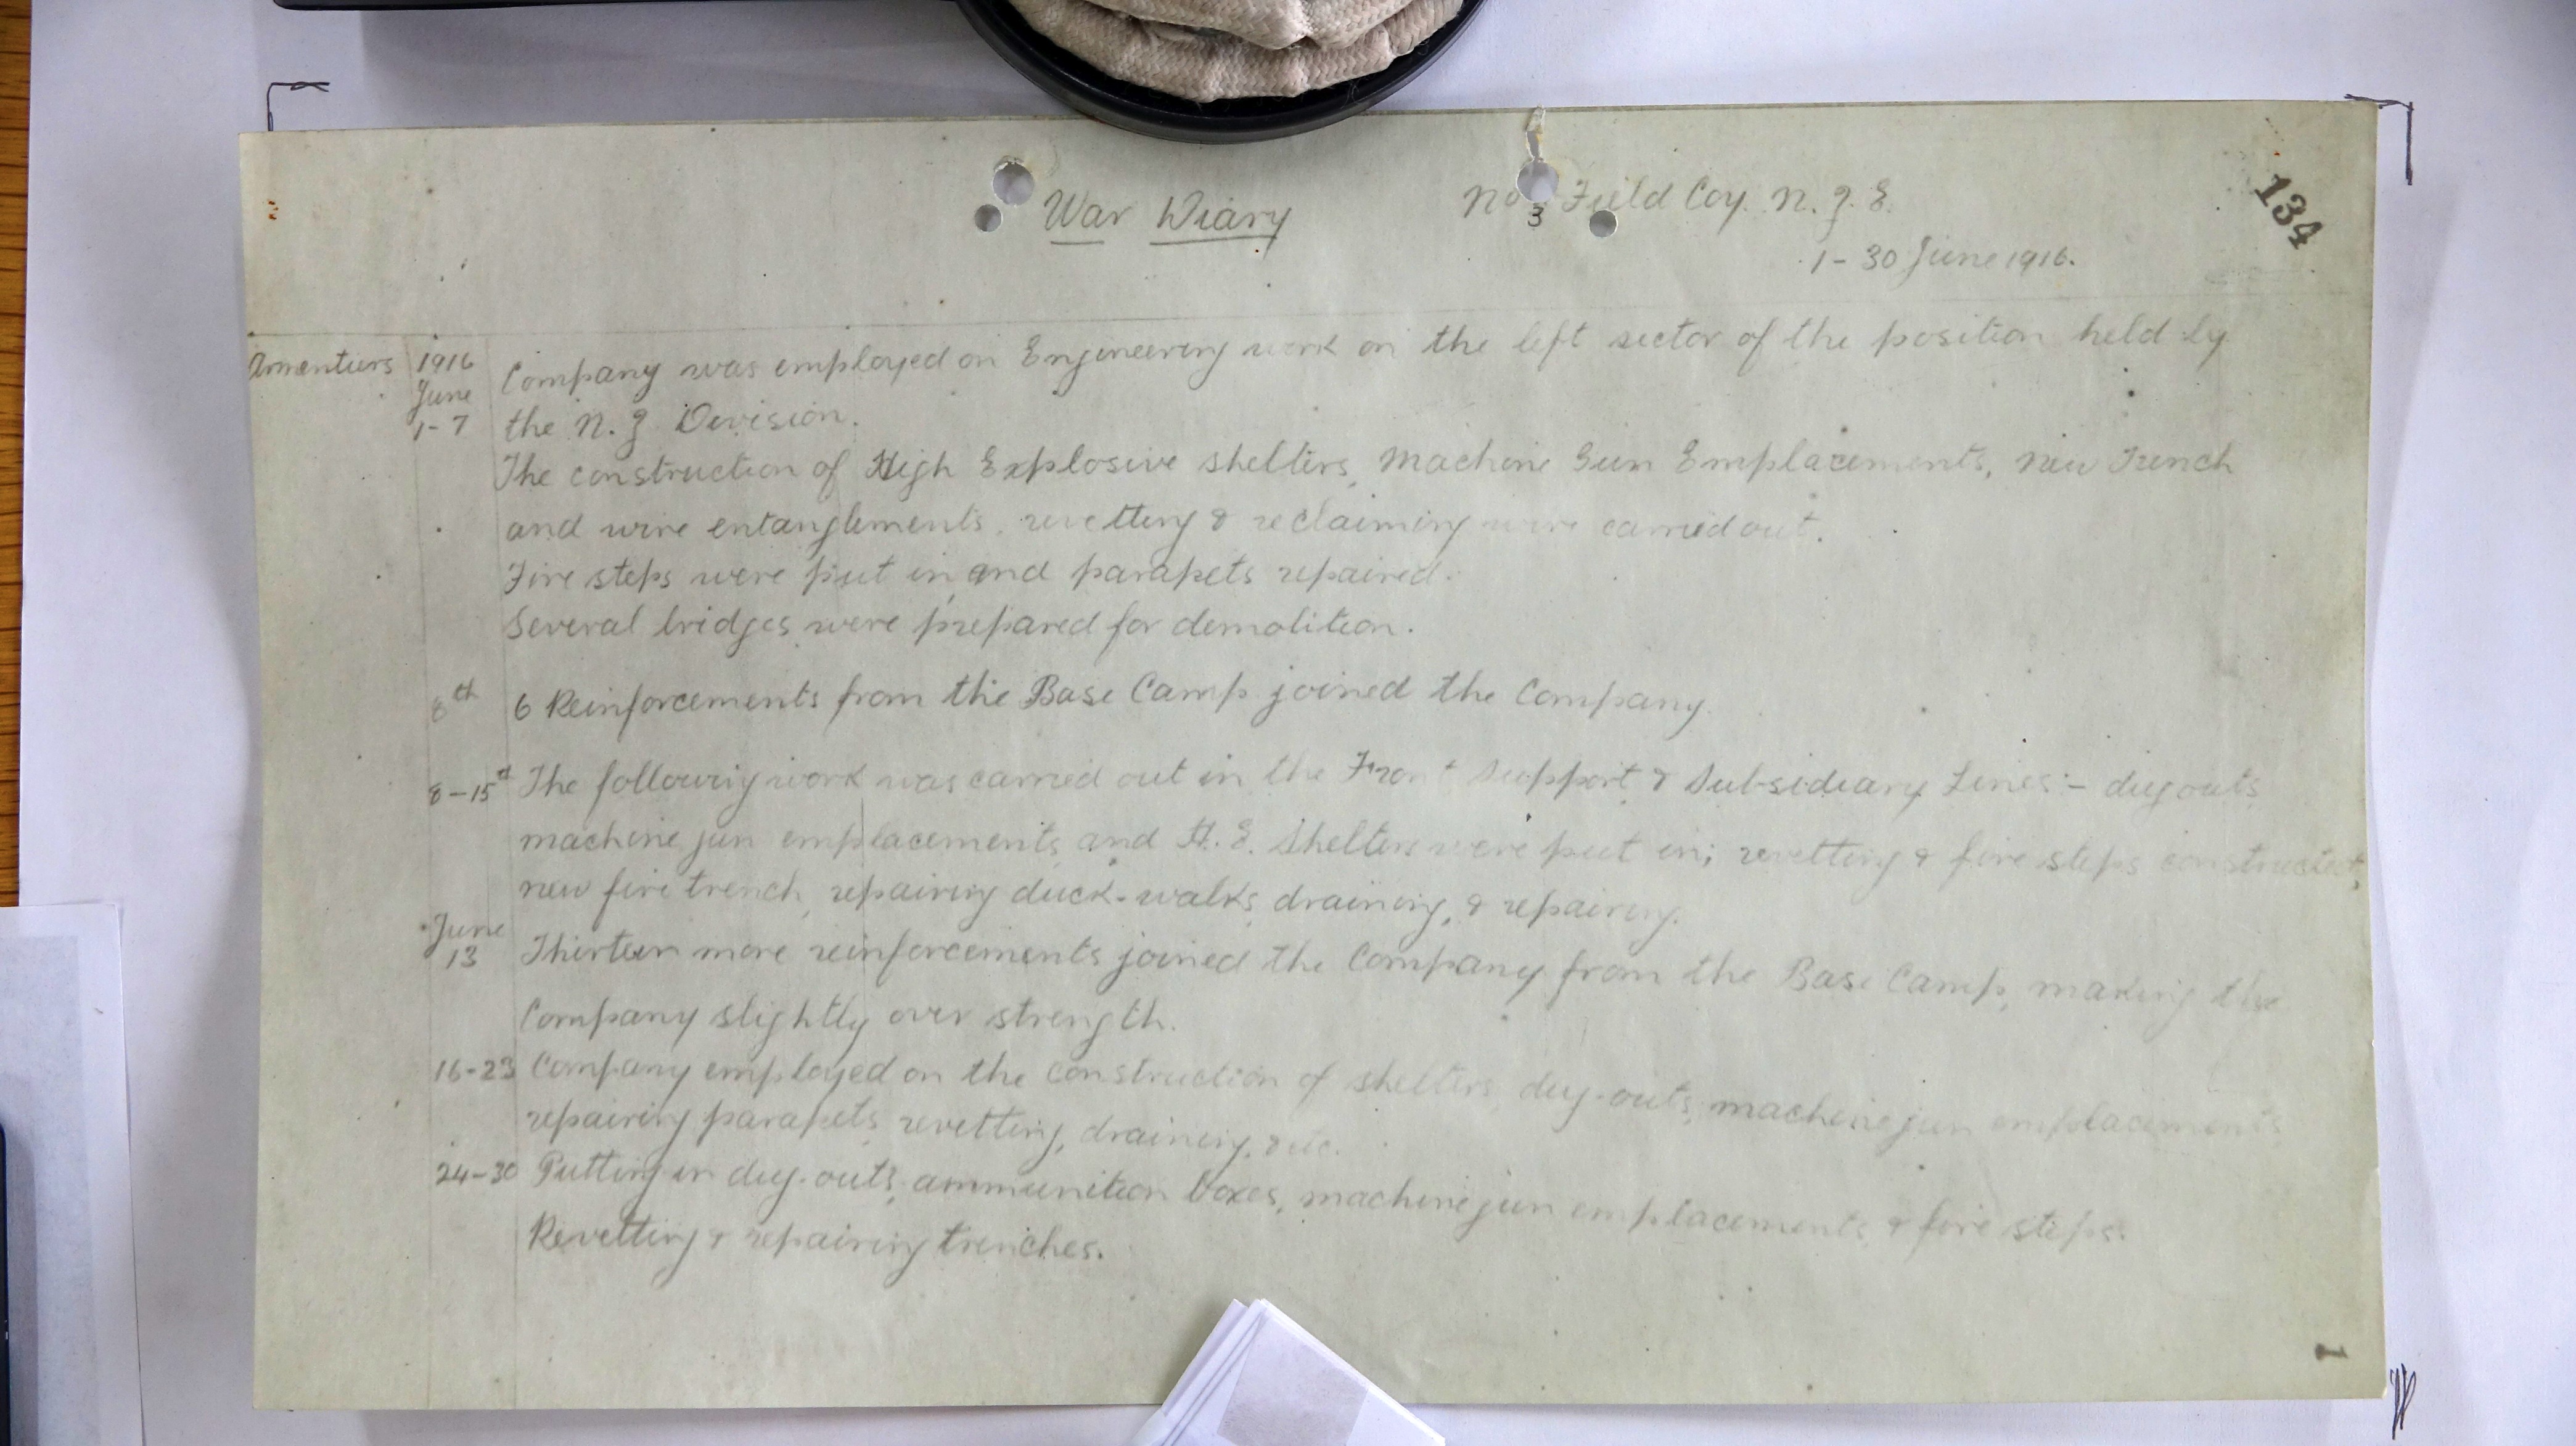 134
War Diary
No 3 Field Coy. N.Z.E.
1-30 June 1916.
Armentiers
1916
June
1-7
Company was employed on Engineering work on the left sector of the position held by
the N.Z Division.
The construction of High Explosive shelters, Machine Gun Emplacements, new Trench
and wire entanglements, revetting & reclaiming were carried out.
Fire steps were put in, and parapets repaired.
Several bridges were prepared for demolition.
8th
6 Reinforcements from the Base Camp joined the Company.
8-15th
The following work was carried out in the Front Support & Subsidiary Lines:- dug outs,
machine gun emplacements and H.E. Shelters were put in; revetting & fire steps constructed,
new fire trench, repairing duck-walks, draining, & repairing.
June
13
Thirteen more reinforcements joined the Company from the Base Camp, making the
Company slightly over strength.
16-23
Company employed on the construction of shelters, dug-outs, machine gun emplacements
repairing parapets, revetting, draining, & etc.
24-30
Putting in dug-outs, ammunition boxes, machine gun emplacements & fire steps.
Revetting & repairing trenches.
1